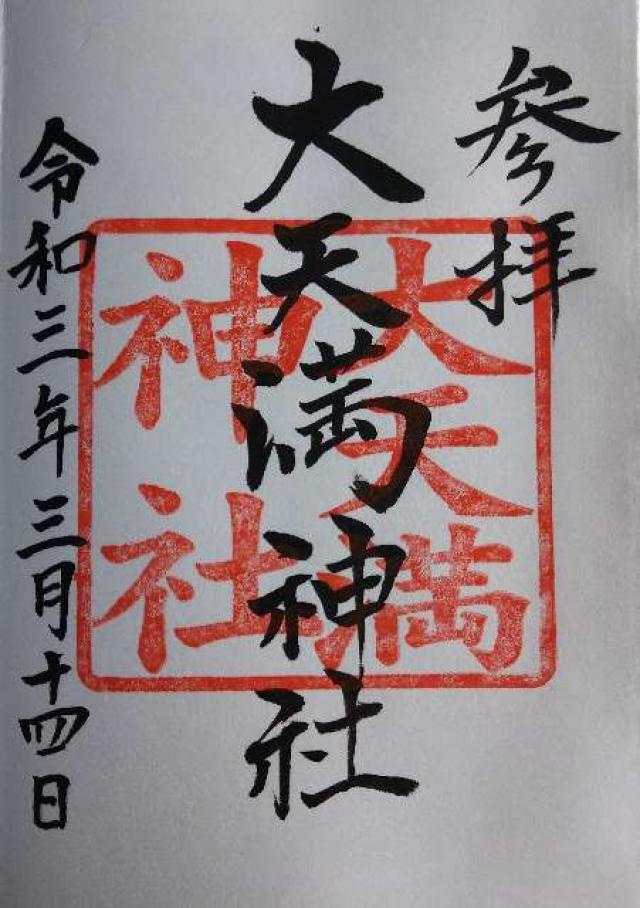 参拝
大天満神社
大天満
神社
令和三年三月十四日